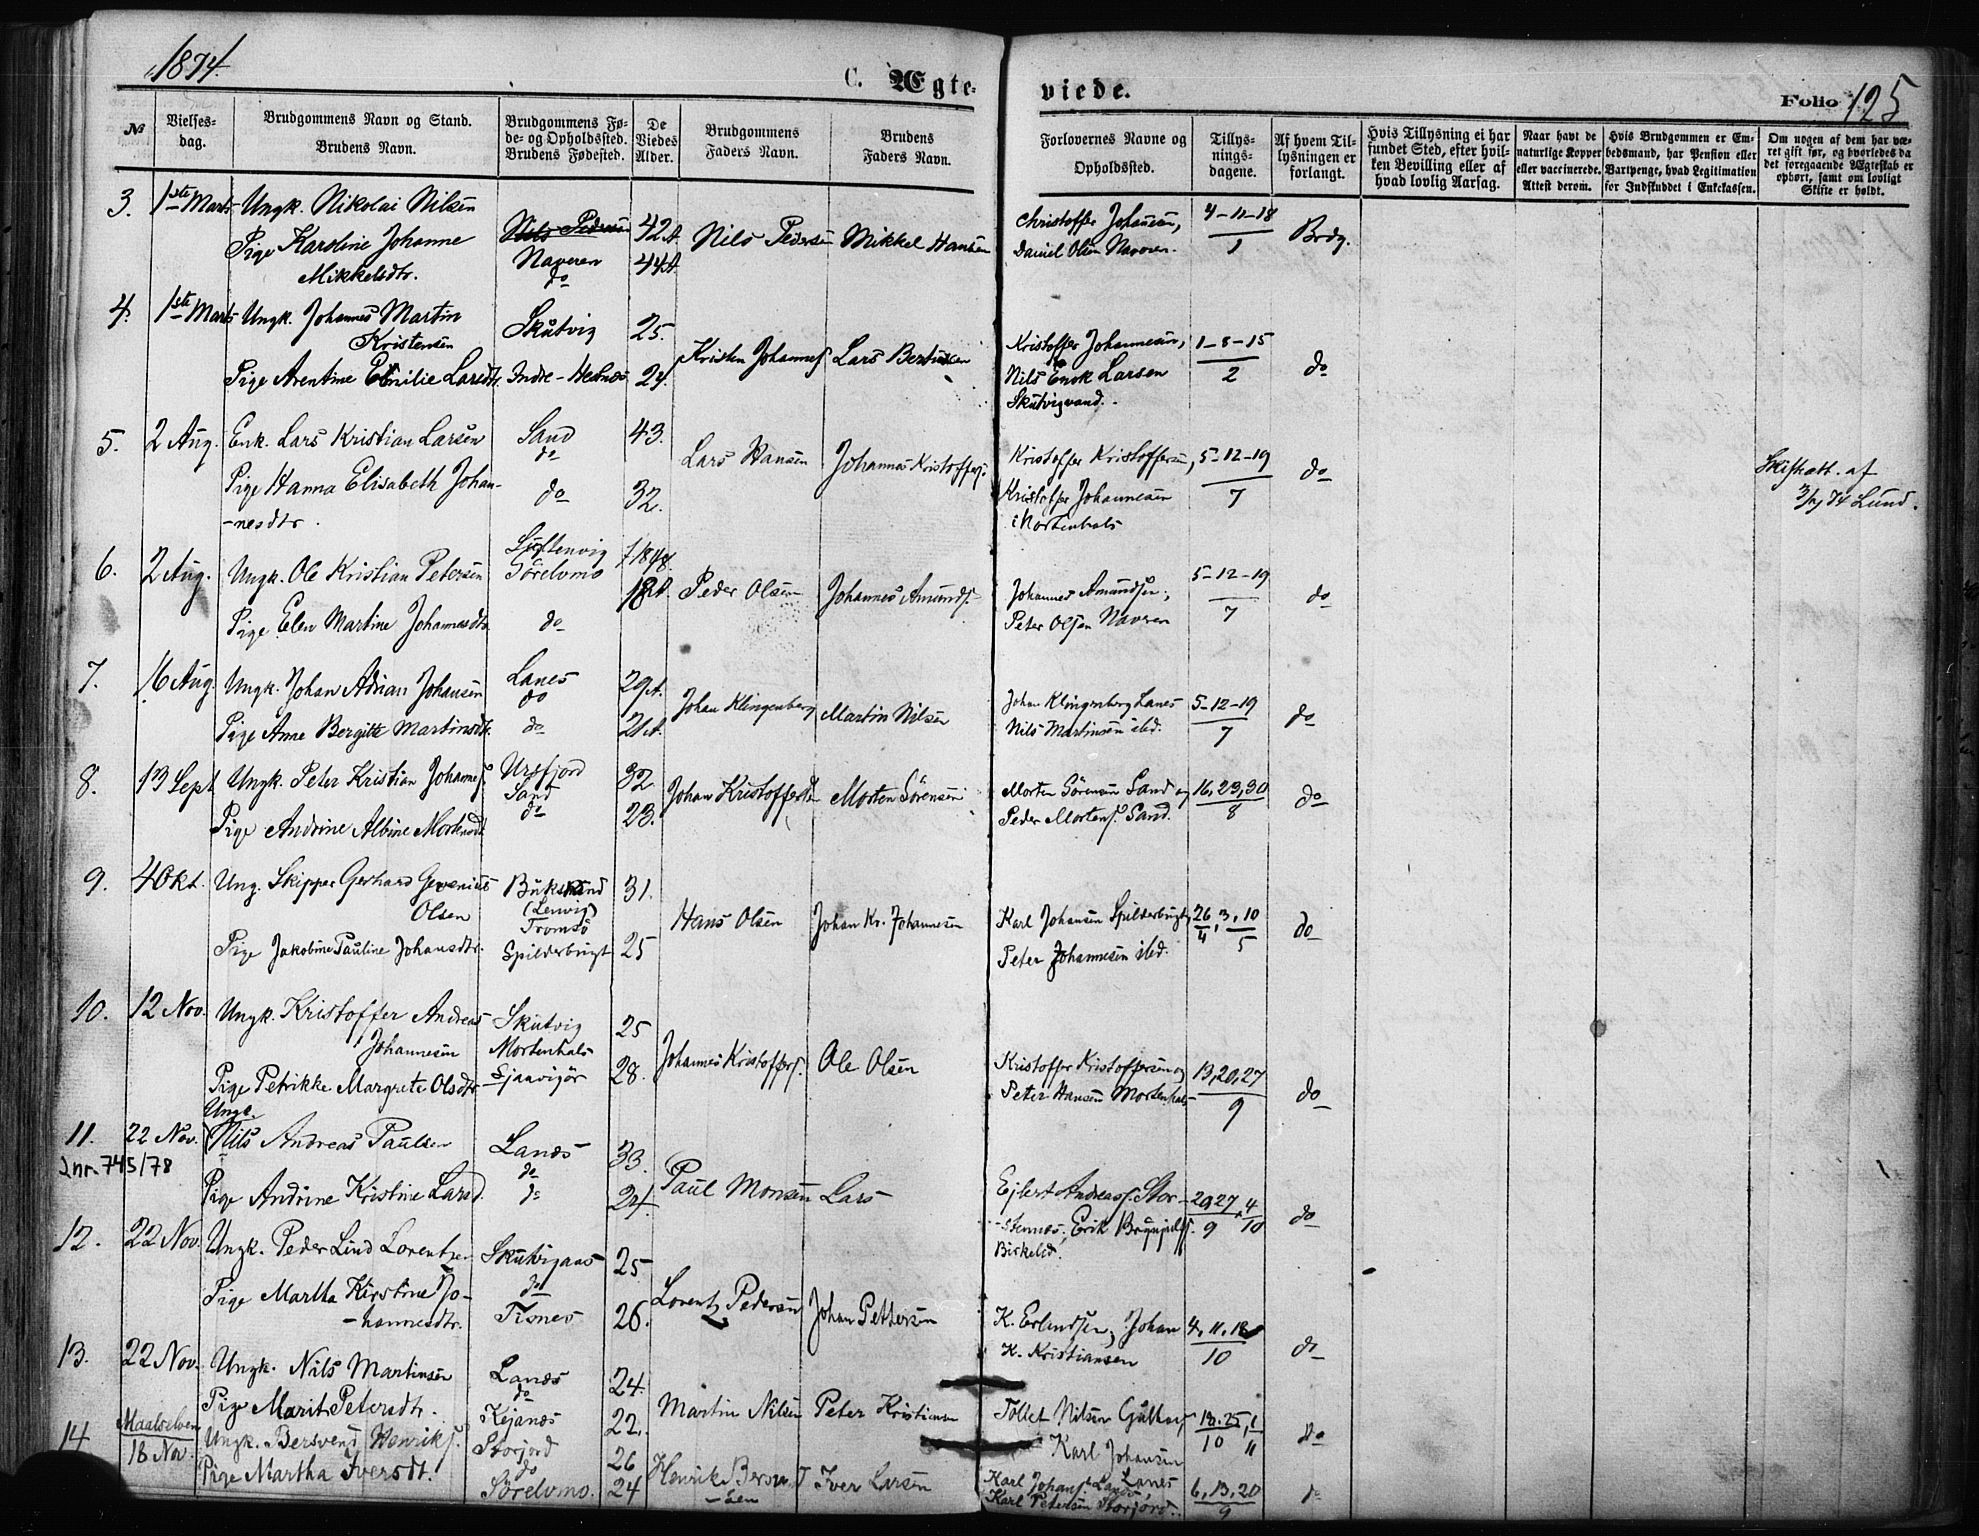 1874.
C. Ægte-
viede.
Folio 125
№
Vielses-
dag.
Brudgommens Navn og Stand.
Brudens Navn.
Brudgommens Fø-
de- og Opholdssted.
Brudens Fødested.
De
Viedes
Alder.
Brudgommens
Faders Navn.
Brudens
Faders Navn.
Forlovernes Navne og
Opholdssted.
Tillys-
nings-
dagene.
Af hvem Til-
lysningen er
forlangt.
Hvis Tillysning ei har
fundet Sted, efter hvil-
ken Bevilling eller af
hvad lovlig Aarsag.
Naar havt de
naturlige Kopper
eller vaccinerede.
Attest derom.
Hvis Brudgommen er Em-
bedsmand, har Pension eller
Vartpenge, hvad Legitimation
for Indskuddet i Enkekassen.
Om nogen af dem har væ-
ret gift før, og hvorledes da
det foregaaende Ægteskab er
ophørt, samt om lovligt
Skifte er holdt.
3. 1ste Marts Ungk. Nikolai Nilsen
Nils Pedersen 42 A. Nils Pedersen Mikkel Hansen Christoffer Johansen, 4-11-18 Brdg.
Pige Karoline Johanne Naveren 44 A. Daniel Olsen Naveren. 1
Mikkelsdtr. do
4. 1ste Marts Ungk. Johannes Martin Skutvig 25.
Kristensen
Kristen Johannes. Lars Bertinsen Kristoffer Johannesen, 1-8-15 do
Pige Arentine Emilie Larsdtr. Indre-Hesnes 24. Nils Enok Larsen 2
Skutvigvand.
5. 2 Aug. Enk. Lars Kristian Larsen Sand 43.
do
Lars Hansen Johannes Kristoffers. Kristoffer Kristoffersen, 5-12-19 do Skifteatt. af
Pige Hanna Elisabeth Johan- do 32. Kristoffer Johannesen 7 74 Lund.
-nesdtr. i Mortenhals
6. 2 Aug. Ungk. Ole Kristian Petersen Sørelvmo f. 1848.
Peder Olsen Johannes Amunds. Johannes Amundsen, 5-12-19 do
Pige Elen Martine Johannesdtr. do Peter Olsen Naveren 7
7. 16 Aug. Ungk. Johan Adrian Johansen Lanes 29 A.
do
Johan Klingenberg Martin Nilsen Johan Klingenberg Lanes 5-12-19 do
Pige Anne Bergitte Martinsdtr. do 21 A. Nils Martinsen ibd. 7
8. 13 Sept Ungk. Peter Kristian Johannes. Ursfjord 32
Sand
Johan Kristoffersen Morten Sørensen Morten Sørensen Sand og 16, 23, 30 do
Pige Andrine Albine Mortensdt. do 23. Peder Mortens. Sand. 8
9. 4 Okt. Ung. Skipper Gerhard Olsen 31.
(Lenvig)
Tromsø
Hans Olsen Johan Kr. Johannesen Karl Johansen Spilderbugt 26, 3, 10 do
Pige Jakobine Pauline Johansdtr. Spilderbugt 25 Peter Johannesen ibd. 4 5
10. 12 Nov. Ungk. Kristoffer Andreas Skutvig 25
Johannesen Mortenhals
Johannes Kristoffers. Ole Olsen Kristoffer Kristoffersen og 13, 20, 27 do
Pige Petrikke Margrete Olsdtr. 28. Peter Hansen Mortenhals 9
11. 22 Nov. Ungk. Nils Andreas Paulsen Lanes 33.
2nr. 745/78 do
Pige Andrine Kristine Larsd. do 24. Paul Monsen Lars Ejlert Andreas. Stor- 20, 27, 4 do
stennes, Erik 9 10
12. 22 Nov. Ungk. Peder Lind Lorentzen Skutvigaas 25
do
Pige Martha Kirstine Jo- Tisnes 26. Lorentz Pedersen Johan Pettersen K. Erlandsen, Johan 4, 11, 18 do
-hannesdtr. K. Kristiansen 10
13. 22 Nov. Ungk. Nils Martinsen Lanes 24.
do
Pige Marit Petersdtr. 22. Martin Nilsen Peter Kristiansen Tollef Nilsen 18, 25, 1 do
Karl Johansen 10 11
Lanes
14 Maalselven
18 Nov. Ungk. Bersvend Henriks. Storjord 26
do
Pige Martha Iversdt. Sørelvmo. 24 Henrik Bersvend Iver Larsen Karl Johans. Lanes, 6, 13, 20 do
-sen Karl Petersen Storjord. 9